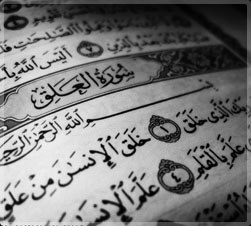 ٱلصَّٰلِحَٰتِ
أَلَيْسَ ٱللَّهُ
سُورَةُ العَلَقِ
بِسْمِ ٱللَّهِ ٱلرَّحْمَٰنِ ٱلرَّحِيمِ
ٱلَّذِى خَلَقَ ١ خَلَقَ ٱلْإِنسَٰنَ مِنْ عَلَقٍ
عَلَّمَ بِٱلْقَلَمِ ٤ عَلَّمَ ٱلْإِنسَٰنَ